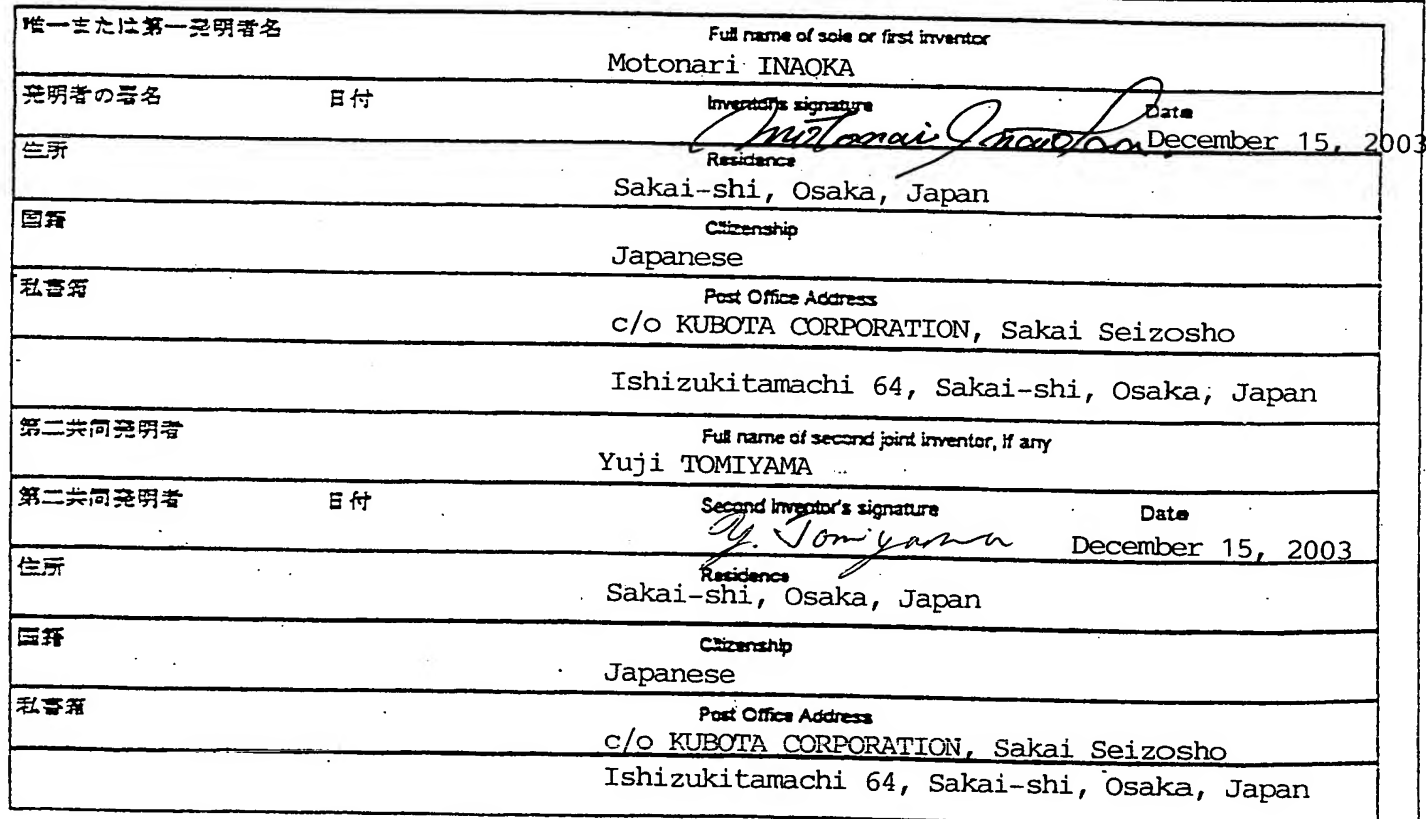 唯一または第一発明者名
Full name of sole or first inventor
Motonari INAOKA
発明者の署名 日付 Inventor's signature Date
Motonari Inaoka December 15, 2003
住所
Residence
Sakai-shi, Osaka, Japan
国籍
Citizenship
Japanese
私書箱
Post Office Address
c/o KUBOTA CORPORATION, Sakai Seizosho
Ishizukitamachi 64, Sakai-shi, Osaka, Japan
第二共同発明者
Full name of second joint inventor, if any
Yuji TOMIYAMA
第二共同発明者 日付 Second Inventor's signature Date
Y. Tomiyama December 15, 2003
住所
Residence
Sakai-shi, Osaka, Japan
国籍
Citizenship
Japanese
私書箱
Post Office Address
c/o KUBOTA CORPORATION, Sakai Seizosho
Ishizukitamachi 64, Sakai-shi, Osaka, Japan